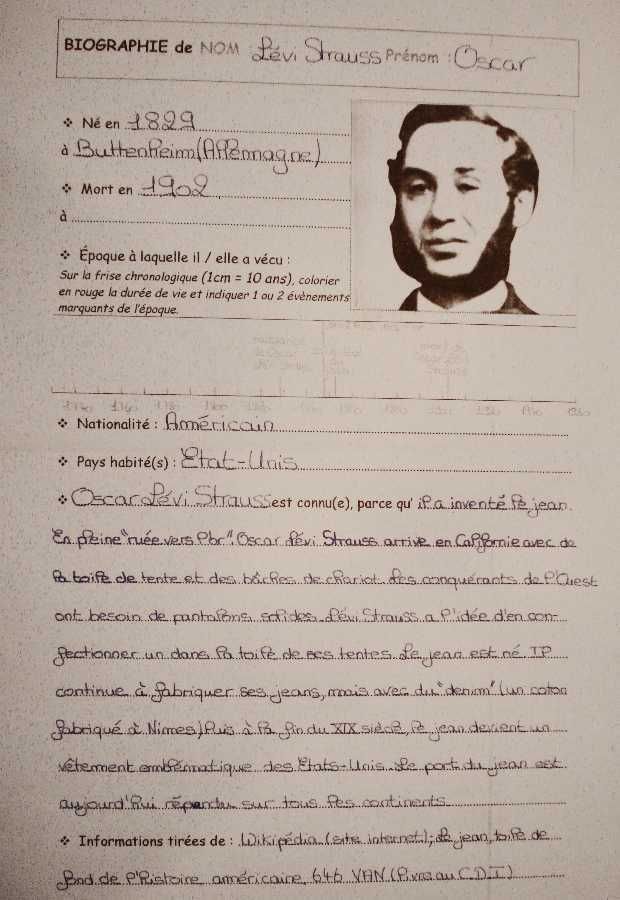 BIOGRAPHIE de NOM : Lévi Strauss Prénom : Oscar
❖ Né en 1829
à Buttenheim (Allemagne)
❖ Mort en 1902
à
❖ Époque à laquelle il / elle a vécu :
Sur la frise chronologique (1cm = 10 ans), colorier
en rouge la durée de vie et indiquer 1 ou 2 évènements
marquants de l'époque.
naissance
de Oscar
❖ Nationalité : Américain
❖ Pays habité(s) : Etat-Unis
❖ Oscar Lévi Strauss est connu(e), parce qu' il a inventé le jean.
En pleine "ruée vers l'or", Oscar Lévi Strauss arrive en Californie avec de
la toile de tente et des bâches de chariot. Les conquérants de l'Ouest
ont besoin de pantalons solides. Lévi Strauss a l'idée d'en con-
fectionner un dans la toile de ses tentes. Le jean est né. Il
continue à fabriquer ses jeans, mais avec du "denim" (un coton
fabriqué à Nimes) Puis à la fin du XIX siècle, le jean devient un
vêtement emblématique des Etats-Unis. Le port du jean est
aujourd'hui répendu sur tous les continents.
❖ Informations tirées de : Wikipédia (site internet); Le jean, toile de
fond de l'histoire américaine, 646 VAN (livre au C.D.I)